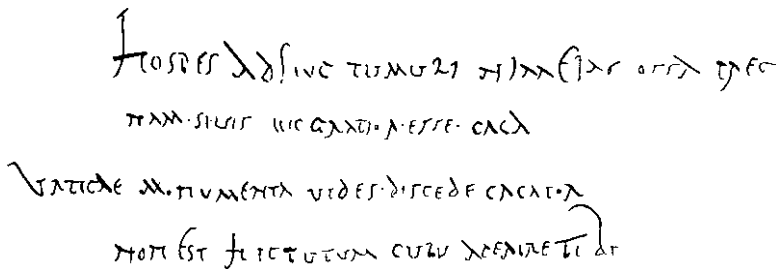 HOSPES ADHUC TUMULI NI MEIAS OSSA PREC
NAM·SI·UIS UIC GRATIOR·ESSE·CACA
URTICAE MONUMENTA UIDES·DISCEDE CACATOR
NON EST HIC TUTUM CULU APERIRE TIBI